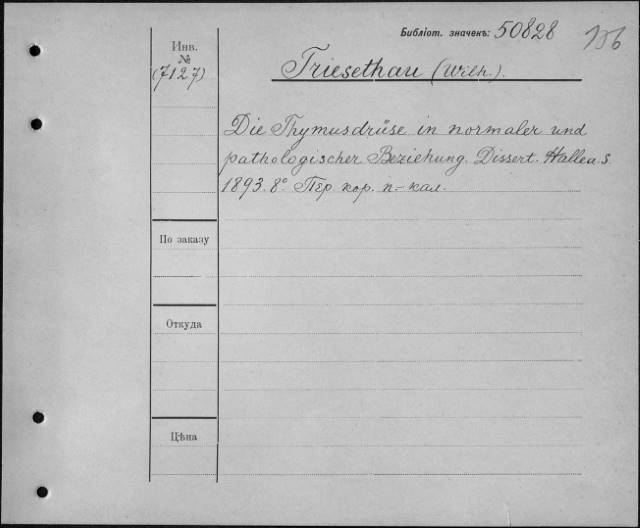 Библіот. значекъ: 50828
Инв.
№
(7127)
Triesethau (Wilh.).
Die Thymusdrüse in normaler und
pathologischer Beziehung. Dissert. Halle a. S.
1893. 8° Пер кор. п.-кал.
По заказу
Откуда
Цѣна